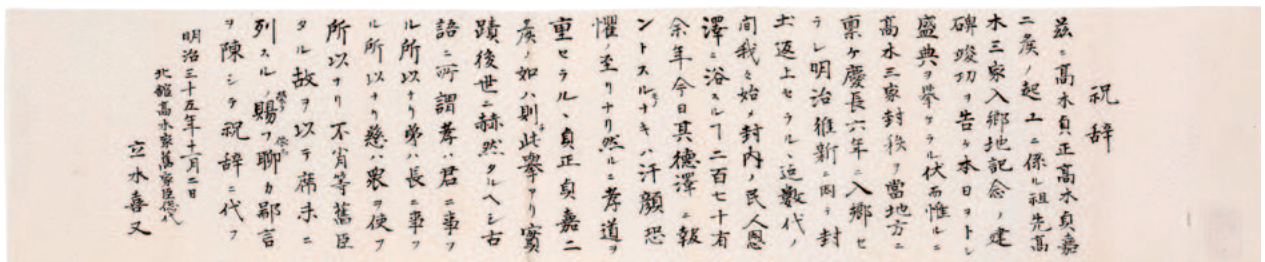 祝辞
茲ニ高水貞正高水貞嘉
二矦ノ起工ニ係ル祖先高
木三家入郷地記念ノ建
碑竣功ヲ告ケ本日ヲトシ
盛典ヲ挙ケラル伏而惟ルニ
高木三家封秩ヲ當地方ニ
稟ケ慶長六年ニ入郷セ
ラレ明治維新ニ因テ封
土返上セラルヽ迄数代ノ
間我々始メ封内ノ民人恩
澤ニ浴スルヿ二百七十有
余年今日其徳澤ニ報
ントスルナキハ汗顔恐
懼ノ至リナリ然ルニ孝道ヲ
重セラルヽ貞正貞嘉二
矦ノ如ハ則此挙アリ實
蹟後世ニ赫然タルヘシ古
語ニ所謂孝ハ君ニ事フ
ル所以ナリ弟ハ長ニ事フ
ル所以ナリ慈ハ衆ヲ使フ
所以ナリ不肖等舊臣
タル故ヲ以テ席末ニ
列スルノ賜フ聊カ鄙言
ヲ陳シテ祝辞ニ代フ
明治三十五年十一月二日
北舘高木家舊家臣惣代
立木喜又